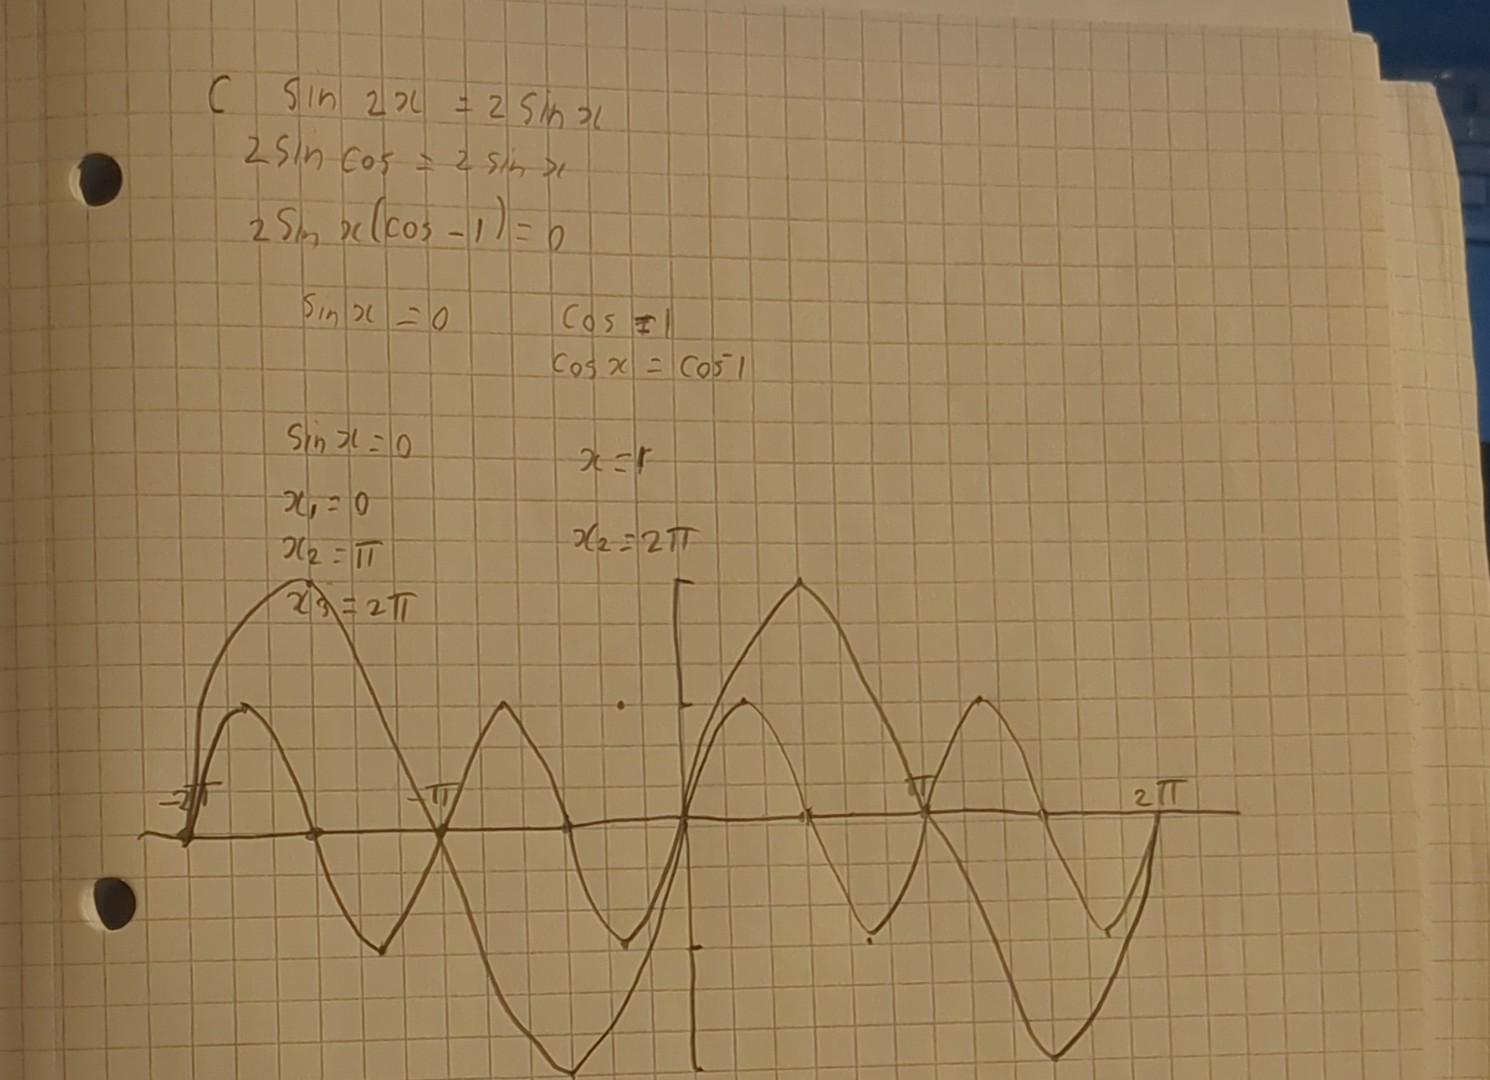 C sin 2x = 2 sin x
2 sin cos = 2 sin x
2 sin x(cos -1) = 0
sin x = 0 cos = 1
cos x = cos⁻1
sin x = 0
x₁ = 0
x₂ = π x₂ = 2π
x₃ = 2π
-2π -π π 2π